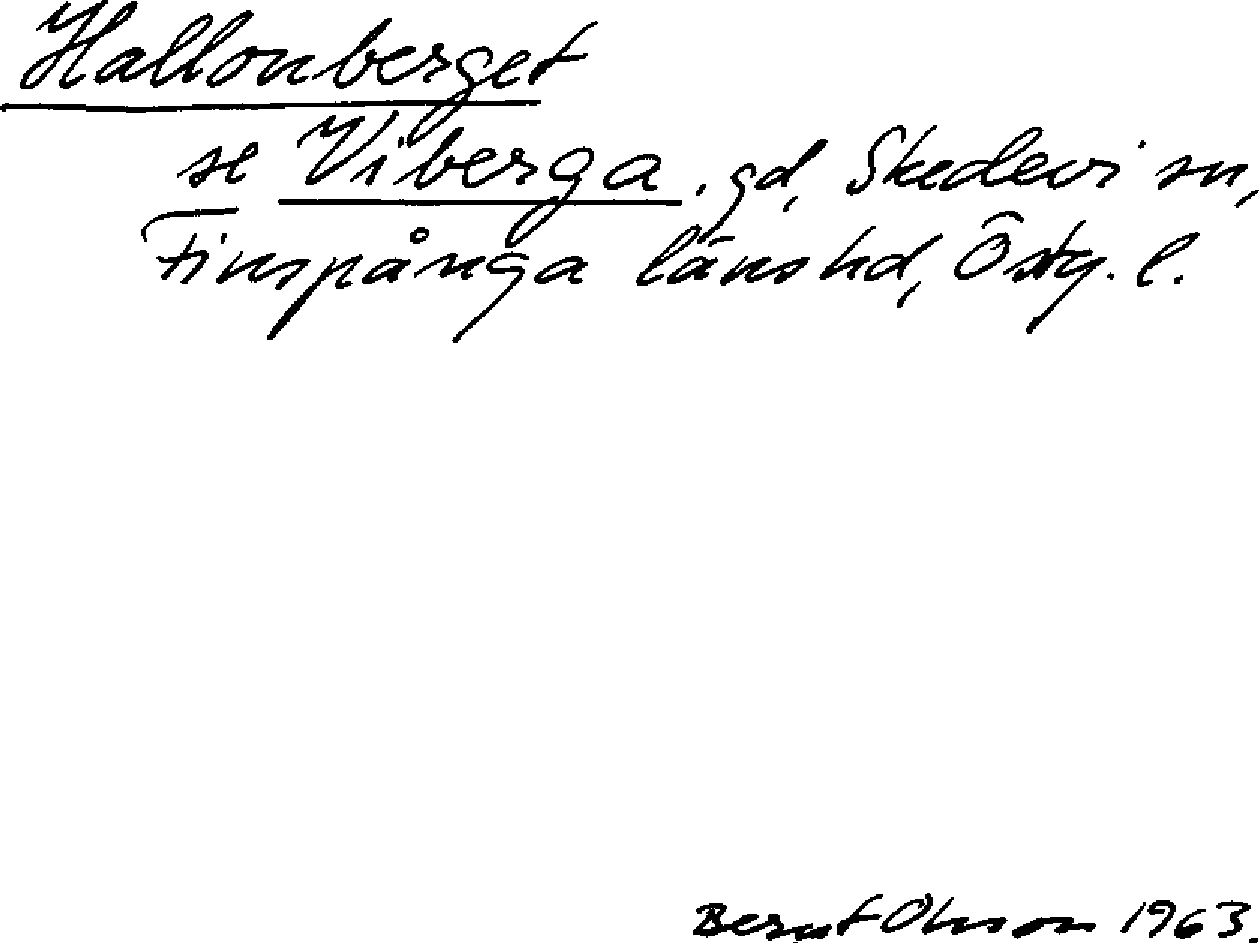 Hallonberget
se Viberga, gd, Skedevi sn,
Finspånga länshd, Östg. l.
Bernt Olsson 1963.